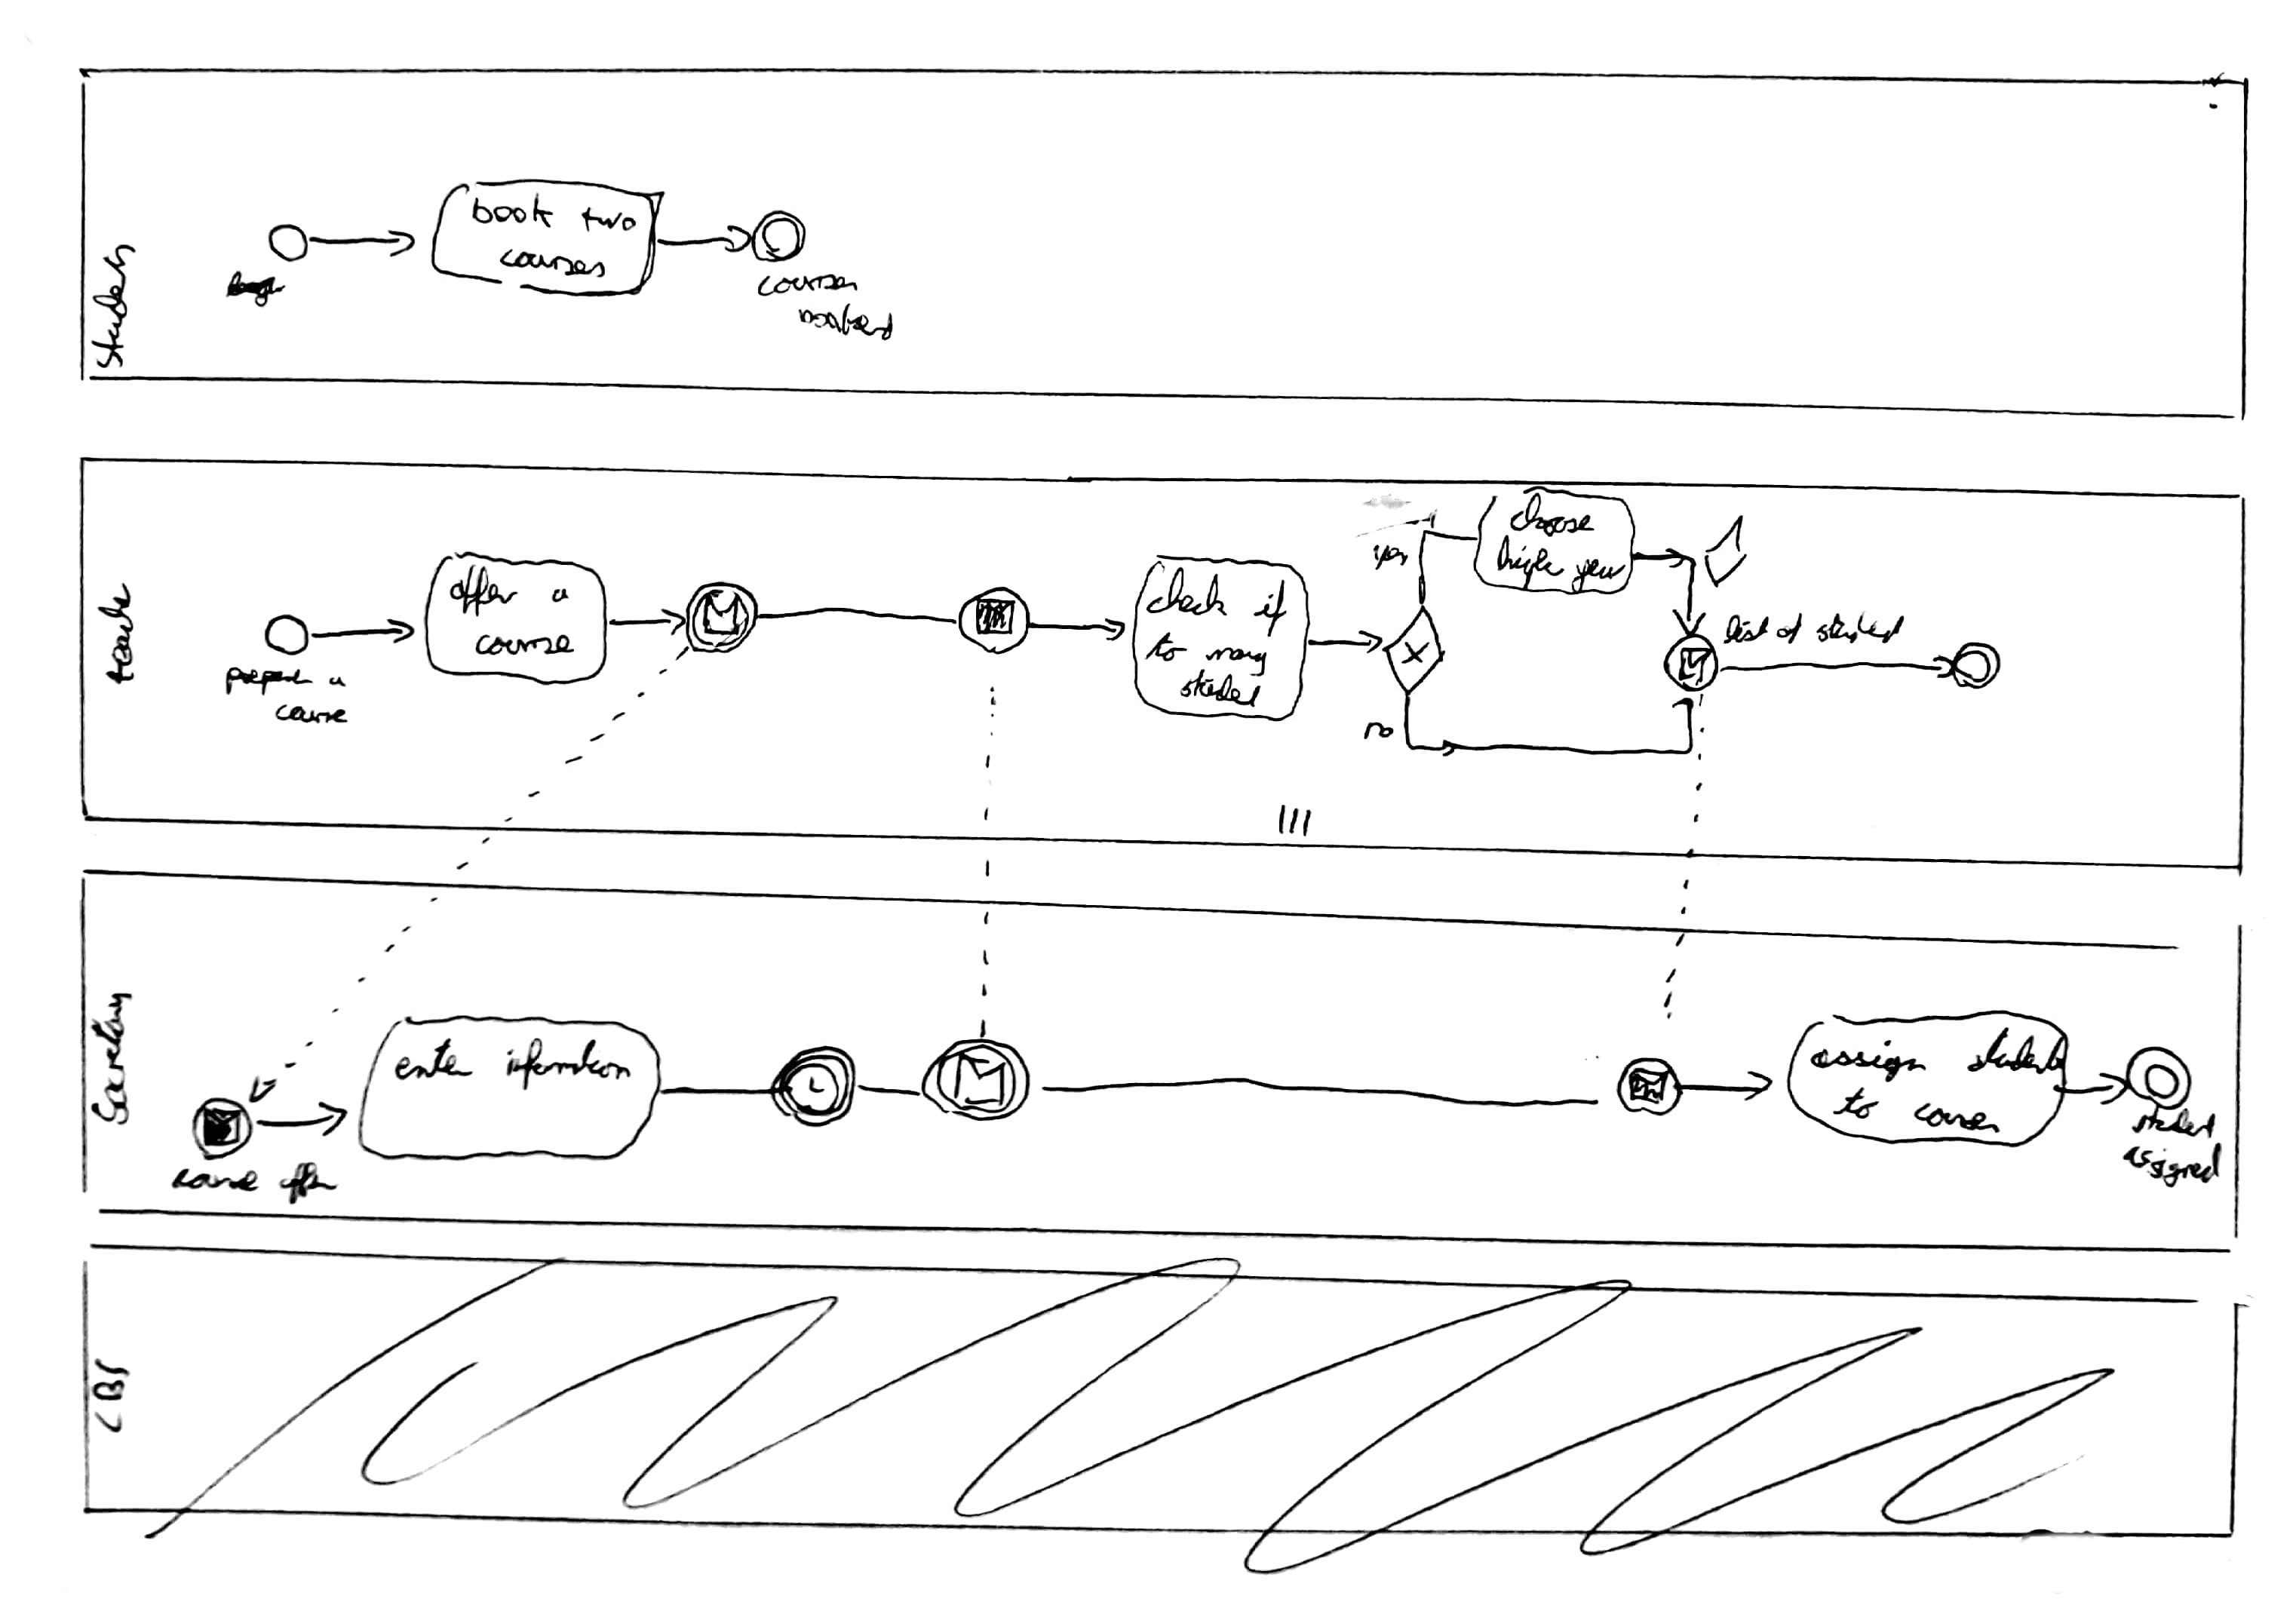 Students
book two
courses
courses
booked
teach
prepare a
course
offer a
course
check if
to many
student
yes
no
choose
high year
list of student
Secretary
course offer
enter information
assign students
to courses
student
assigned
CBS